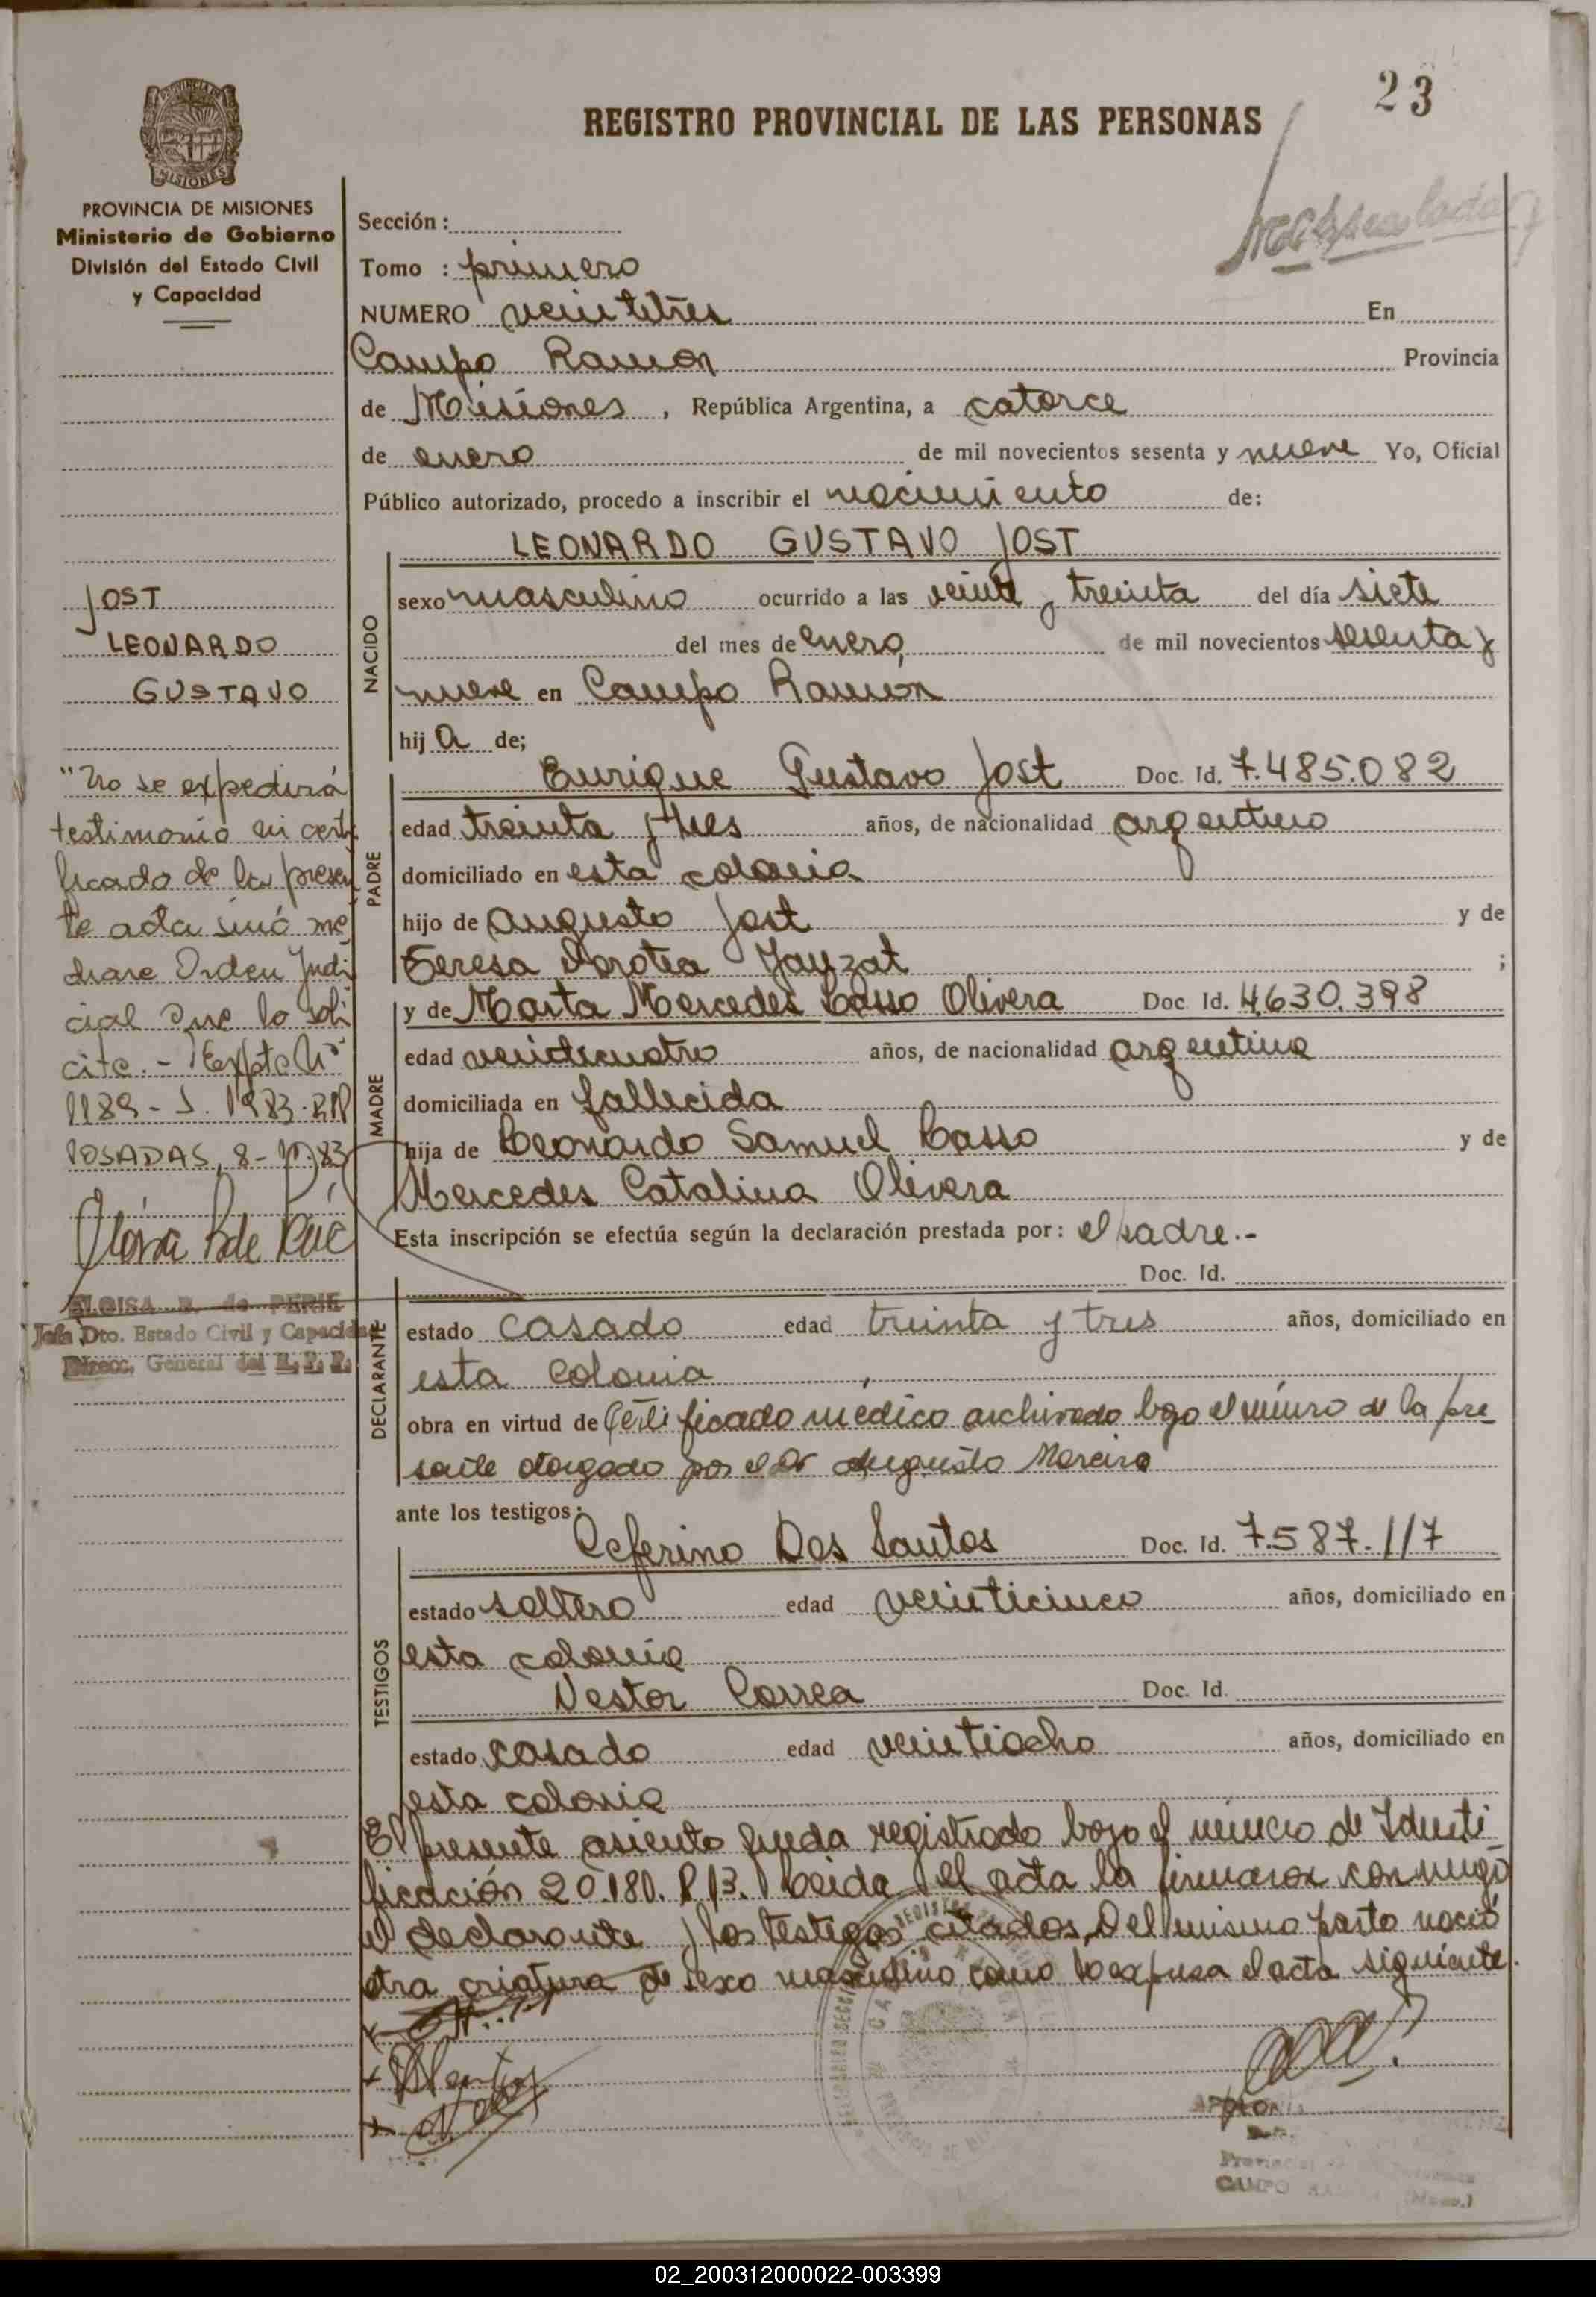 23
REGISTRO PROVINCIAL DE LAS PERSONAS
PROVINCIA DE MISIONES
Ministerio de Gobierno
División del Estado Civil
y Capacidad
Sección:
Tomo : primero
NUMERO veintitres En
Campo Ramon Provincia
de Misiones, República Argentina, a catorce
de enero de mil novecientos sesenta y nueve Yo, Oficial
Público autorizado, procedo a inscribir el nacimiento de:
LEONARDO GUSTAVO JOST
JOST
LEONARDO
GUSTAVO
"No se expedirá
testimonio ni certi
ficado de la presen
te acta sinó me
diare Orden Judi
cial que lo soli
cite.- Expte Nº
1189-J.1983-RPP
POSADAS, 8-
ELOISA R. de PERIE
Jefa Dto. Estado Civil y Capacidad
Direcc. General del R. P. P.
NACIDO
sexo masculino ocurrido a las veinte y treinta del día siete
del mes de enero, de mil novecientos sesenta y
nueve en Campo Ramon
hij a de;
PADRE
Enrique Gustavo Jost Doc. Id. 7.485.082
edad treinta y tres años, de nacionalidad argentino
domiciliado en esta colonia
hijo de Augusto Jost y de
Teresa Dorotea ;
MADRE
y de Marta Mercedes Basso Olivera Doc. Id. 4.630.398
edad veinticuatro años, de nacionalidad argentina
domiciliada en fallecida
hija de Leonardo Samuel Basso y de
Mercedes Catalina Olivera
Esta inscripción se efectúa según la declaración prestada por: el padre.-
Doc. Id.
DECLARANTE
estado casado edad treinta y tres años, domiciliado en
esta colonia
obra en virtud de Certificado medico archivado bajo el número de la pre
sente otorgado por el Dr Augusto Moreira
ante los testigos:
TESTIGOS
Ceferino Dos Santos Doc. Id. 7.587.117
estado soltero edad veinticinco años, domiciliado en
esta colonia
Nestor Correa Doc. Id.
estado casado edad veintiocho años, domiciliado en
esta colonia
El presente asiento queda registrado bajo el número de Identi
ficación 20.180.813. Leida el acta la firmaron conmigo
el declarante y los testigos citados, Del mismo parto nació
otra criatura de sexo masculino como lo expresa el acta siguiente.
CAMPO
02_200312000022-003399